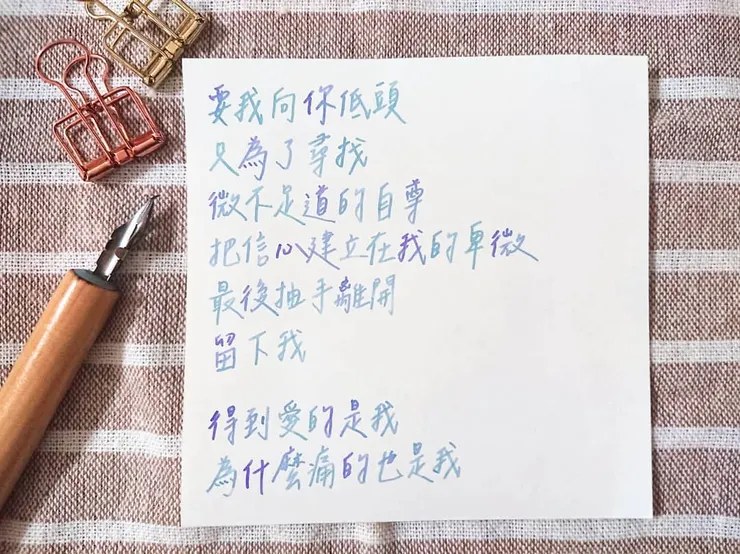 要我向你低頭
只為了尋找
微不足道的自尊
把信心建立在我的卑微
最後抽手離開
留下我
得到愛的是我
為什麼痛的也是我